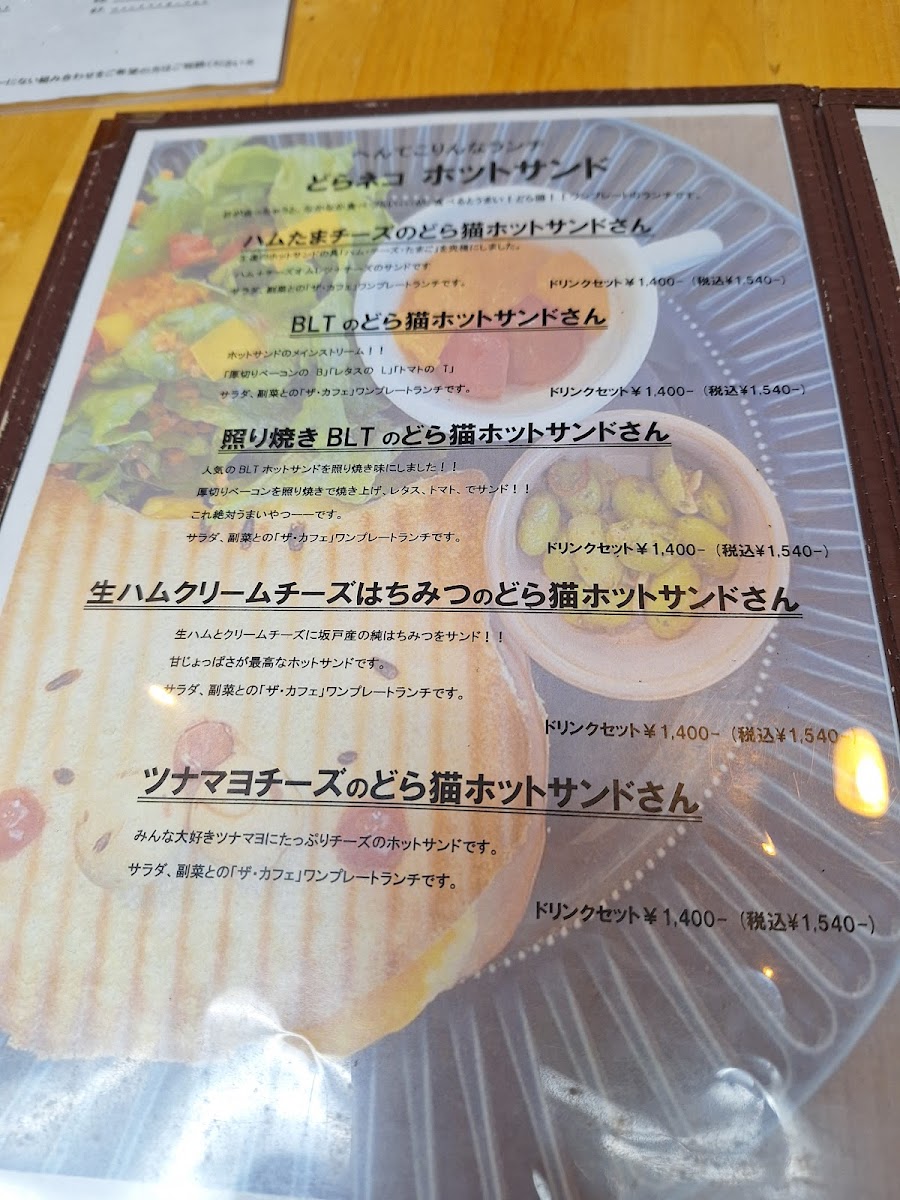 へんてこりんなランチ
どらネコ ホットサンド
ワンプレートのランチです。
ハムたまチーズのどら猫ホットサンドさん
「ハム・チーズ・たまご」を完璧にしました。
ハム+チーズオムレツ+チーズのサンドです
サラダ、副菜との「ザ・カフェ」ワンプレートランチです。
ドリンクセット¥1,400- (税込¥1,540-)
BLTのどら猫ホットサンドさん
ホットサンドのメインストリーム!!
「厚切りベーコンの B」「レタスの L」「トマトの T」
サラダ、副菜との「ザ・カフェ」ワンプレートランチです。
ドリンクセット¥1,400- (税込¥1,540-)
照り焼きBLTのどら猫ホットサンドさん
人気のBLTホットサンドを照り焼き味にしました!!
厚切りベーコンを照り焼きで焼き上げ、レタス、トマト、でサンド!!
これ絶対うまいやつーーです。
サラダ、副菜との「ザ・カフェ」ワンプレートランチです。
ドリンクセット¥1,400- (税込¥1,540-)
生ハムクリームチーズはちみつのどら猫ホットサンドさん
生ハムとクリームチーズに坂戸産の純はちみつをサンド!!
甘じょっぱさが最高なホットサンドです。
サラダ、副菜との「ザ・カフェ」ワンプレートランチです。
ドリンクセット¥1,400- (税込¥1,540-
ツナマヨチーズのどら猫ホットサンドさん
みんな大好きツナマヨにたっぷりチーズのホットサンドです。
サラダ、副菜との「ザ・カフェ」ワンプレートランチです。
ドリンクセット¥1,400- (税込¥1,540-)